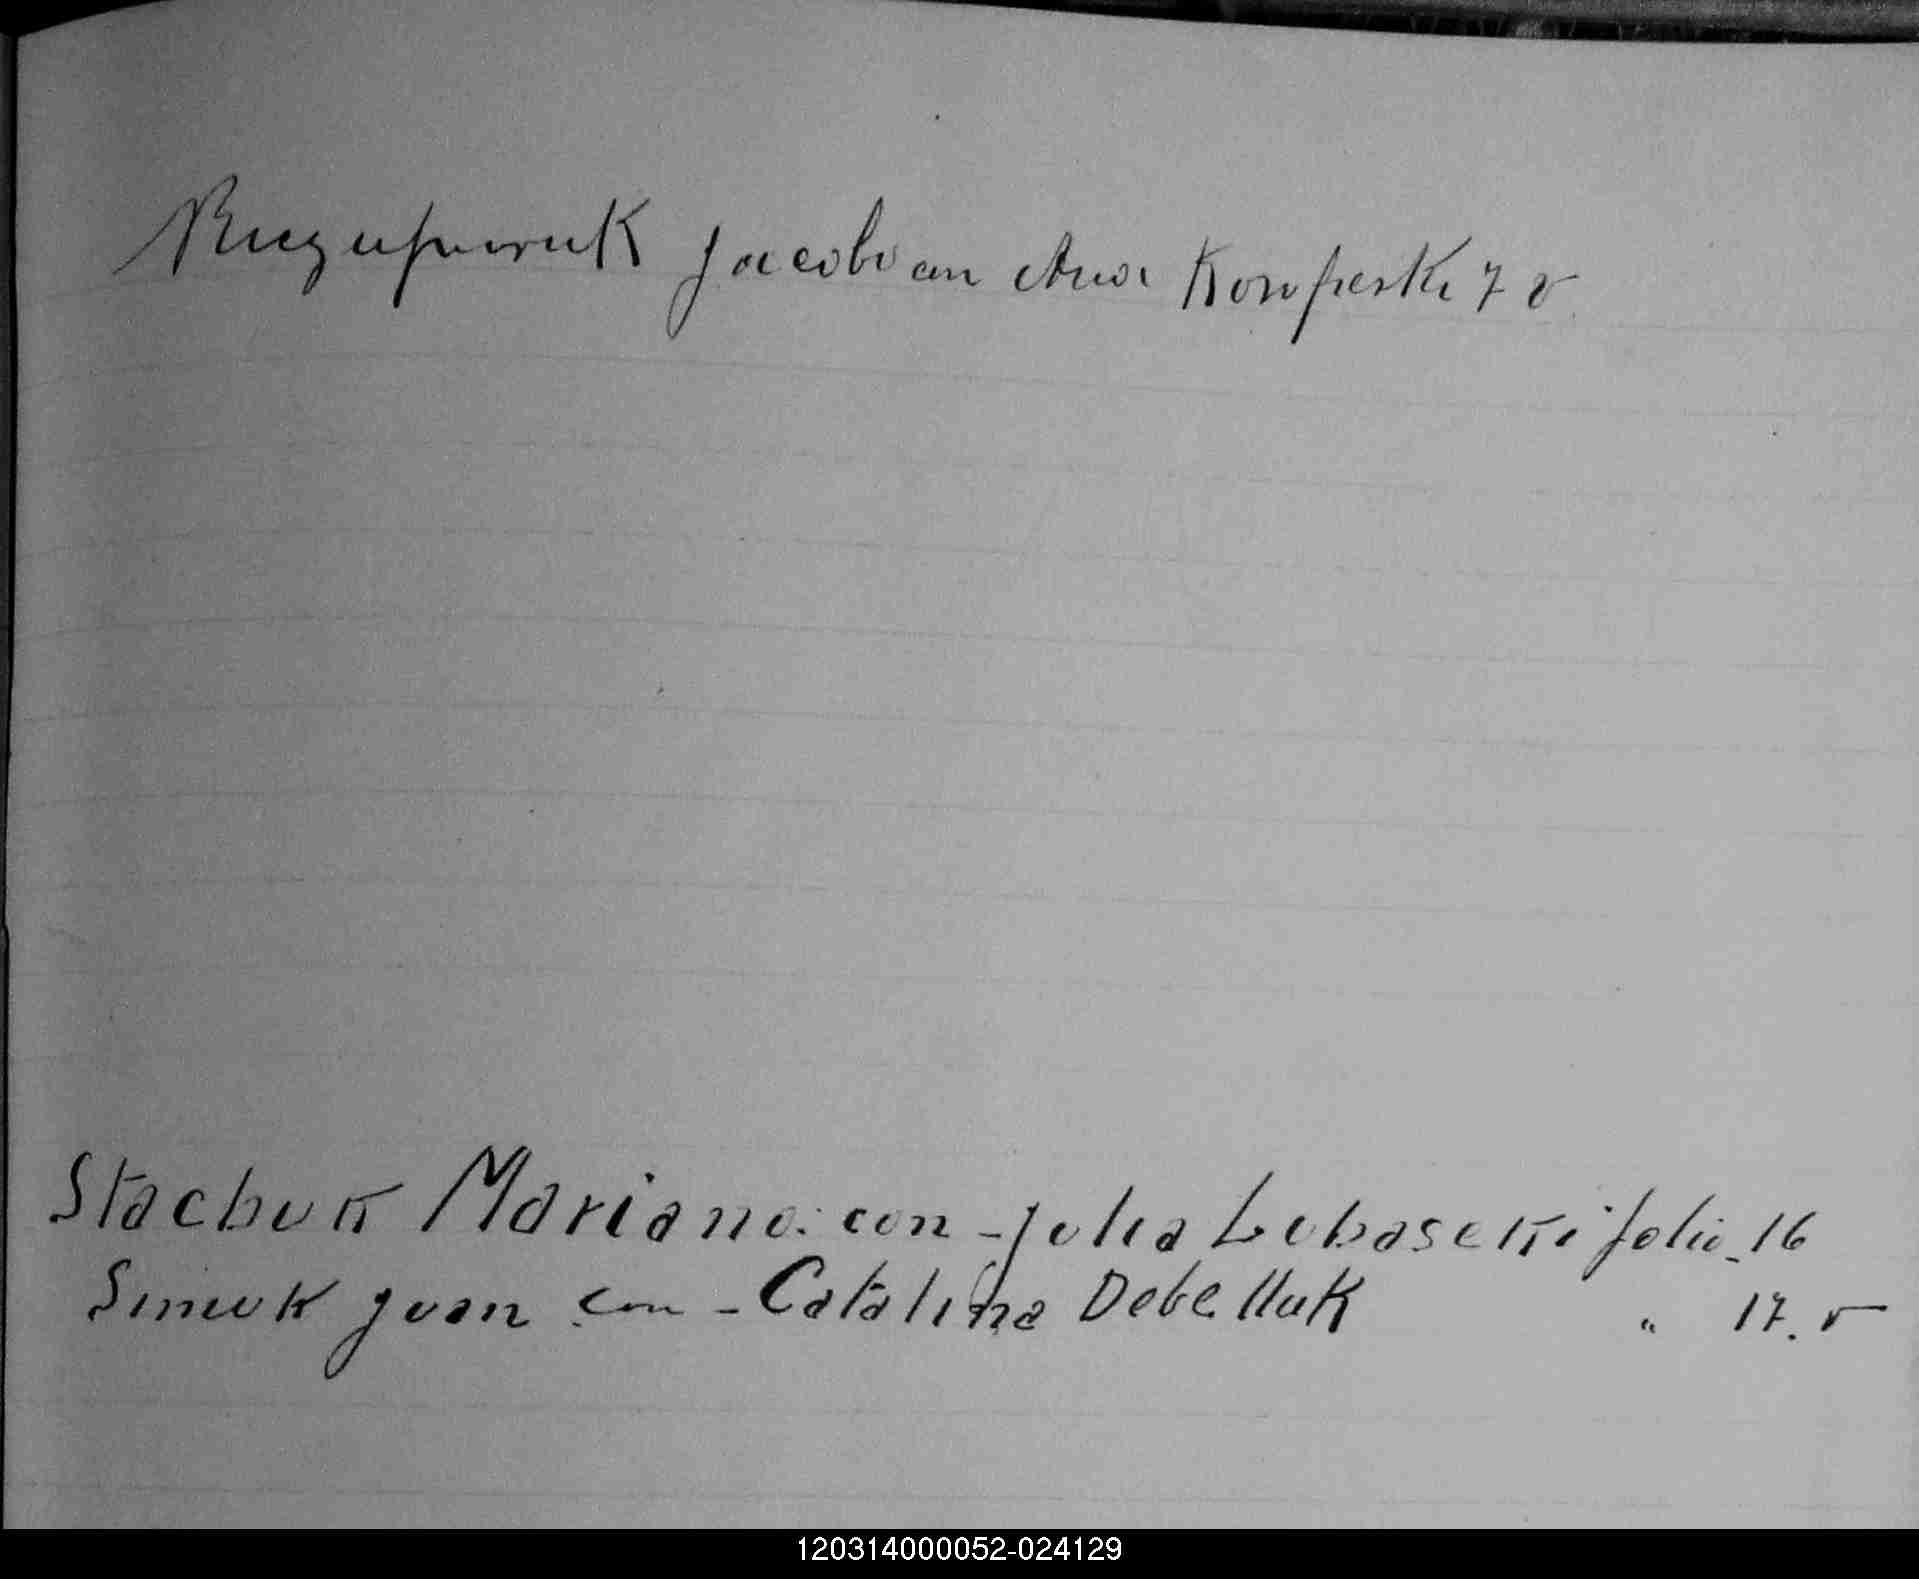 Jacobo con Ana Konfierski 7 v
Stachuk Mariano. con - Julia Lobaseki folio 16
Simuk Juan con - Catalina Debelluk " 17. v
120314000052-024129